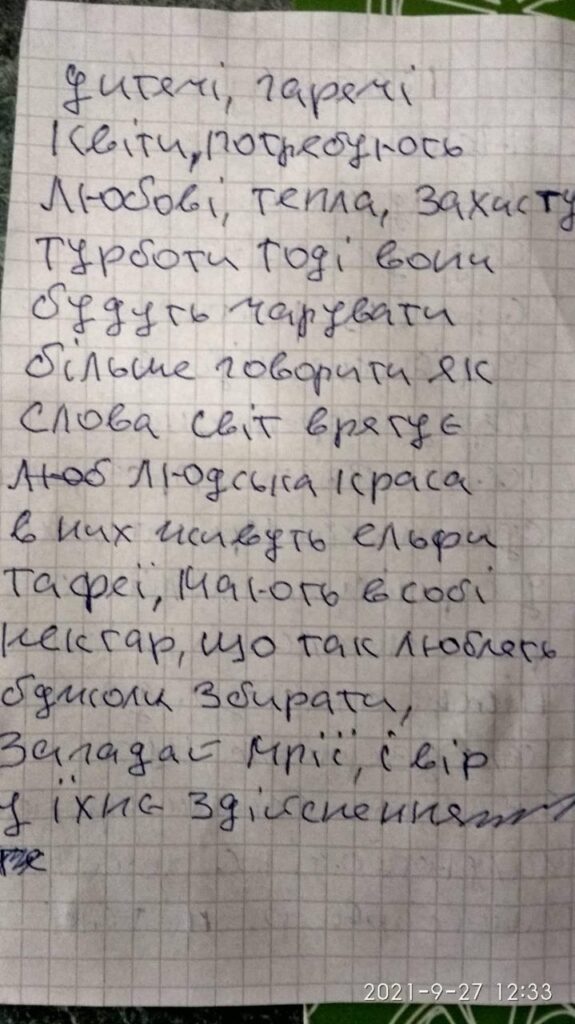 дитячі, гарячі
квіти, потребують
любові, тепла, захисту
турботи тоді вони
будуть чарувати
більше говорити як
слова світ врятує
люб людська краса
в них живуть ельфи
та феї, мають в собі
нектар, що так люблять
бджоли збирати,
Загадай мрії, і вір
у їхнє здійснення
2021-9-27 12:33